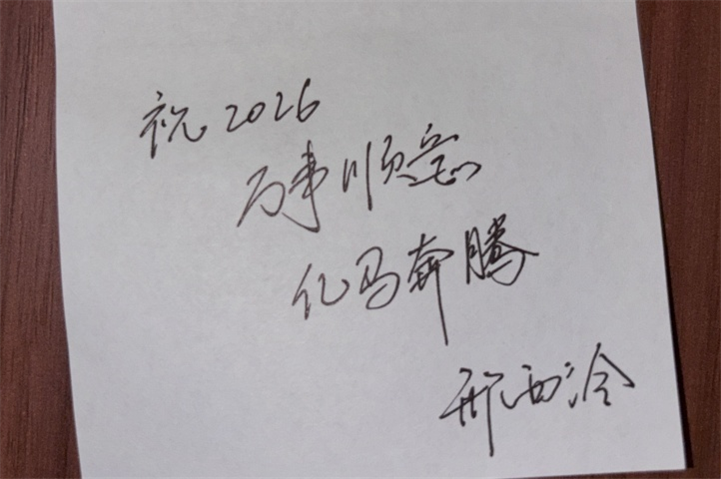 祝2026
万事顺意
亿马奔腾
邢西冷